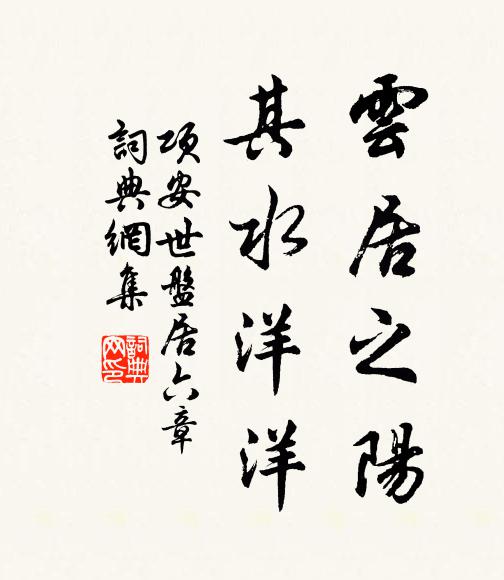 雲居之陽
其水洋洋
項安世盤居六章
詞典網集
詞典网印